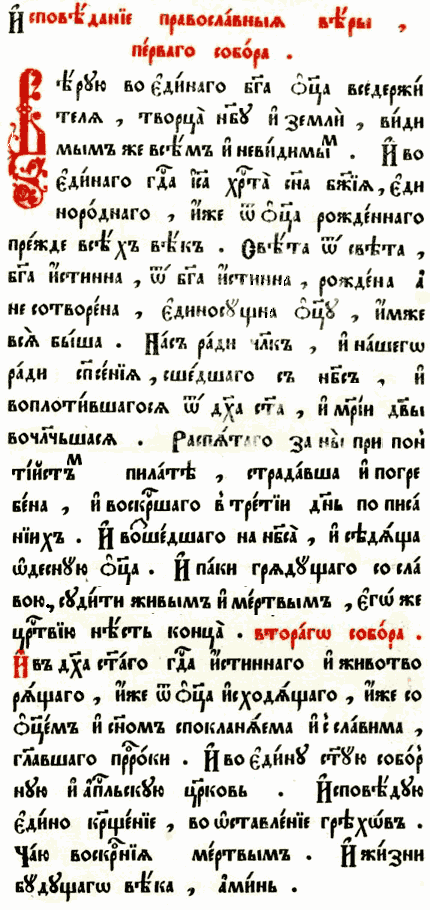 И҆сповѣ́данїе правосла́вныѧ вѣ́ры ,
пе́рваго собо́ра .
Вѣ́рꙋю во є҆ди́наго бг҃а ѻ҆ц҃а̀ вседержи́
телѧ , творца̀ нб҃ꙋ и҆ землѝ , ви́ди
мымъ же всѣ́мъ и҆ неви́димыⷨ . И҆ во
є҆ди́наго гд҇а і҆с҃а хрт҇а̀ сн҃а бж҃їѧ , є҆ди
норо́днаго , и҆́же ѿ ѻ҆ц҃а̀ рожде́ннаго
пре́жде всѣ́хъ вѣ́къ . Ѻ҆вѣ́та ѿ свѣ́та ,
бг҃а и҆́стинна , ѿ бг҃а и҆́стинна , рожде́на а҆
не сотворе́на , є҆диносꙋ́щна ѻ҆ц҃ꙋ̀ , и҆́мже
всѧ̀ бы́ша . На́съ ра́ди чл҃къ , и҆ на́шегѡ
ра́ди сп҃се́нїѧ , сше́дшаго съ нб҃съ , и҆
воплоти́вшагосѧ ѿ дх҃а ст҃а , и҆ мр҃і́и дв҃ы
вочл҃чьшасѧ . Распѧ́таго за ны̀ при пон
ті́йстѣⷨ пила́тѣ , страда́вша и҆ погре
бе́на , и҆ воскр҇шаго в̾ тре́тїи дн҃ь по писа́
нїихъ . И҆ возше́дшаго на нб҃са̀ , и҆ сѣдѧ́ща
ѡ҆деснꙋ́ю ѻ҆ц҃а̀ . И҆ па́ки грѧдꙋ́щаго со сла́
вою , сꙋди́ти живы́мъ и҆ ме́ртвымъ , є҆гѡ́ же
црт҇вїю нѣ́сть конца̀ . втора́гѡ собо́ра .
И҆ въ дх҃а ст҃а́го гд҇а и҆́стиннаго и҆ животво
рѧ́щаго , и҆́же ѿ ѻ҆ц҃а̀ и҆сходѧ́щаго , и҆́же со
ѻ҆ц҃е́мъ и҆ сн҃омъ спокланѧ́ема и҆ с̾сла́вима ,
гл҃авшаго прⷪ҇ро́ки . И҆ во є҆ди́нꙋ ст҃ꙋ́ю собо́р
нꙋю и҆ а҆п҇льскꙋю цр҃ковь . И҆сповѣ́дꙋю
є҆ди́но кр҃ще́нїе , во ѡ҆ставле́нїе грѣхѡ́въ .
Ча́ю воскр҇нїѧ ме́ртвымъ . И҆ жи́зни
бꙋ́дꙋщагѡ вѣ́ка , а҆ми́нь .